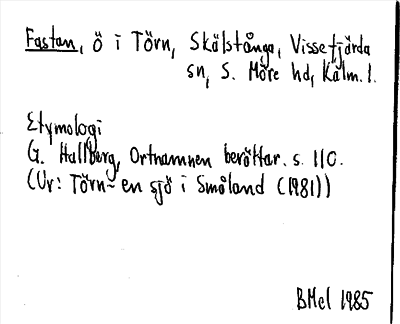 Fastan, ö i Törn, Skälstånga, Vissefjärda
sn, S. Möre hd, Kalm. l.
Etymologi
G. Hallberg, Ortnamnen berättar. s. 110.
(Ur: Törn - en sjö i Småland (1981))
BMel 1985